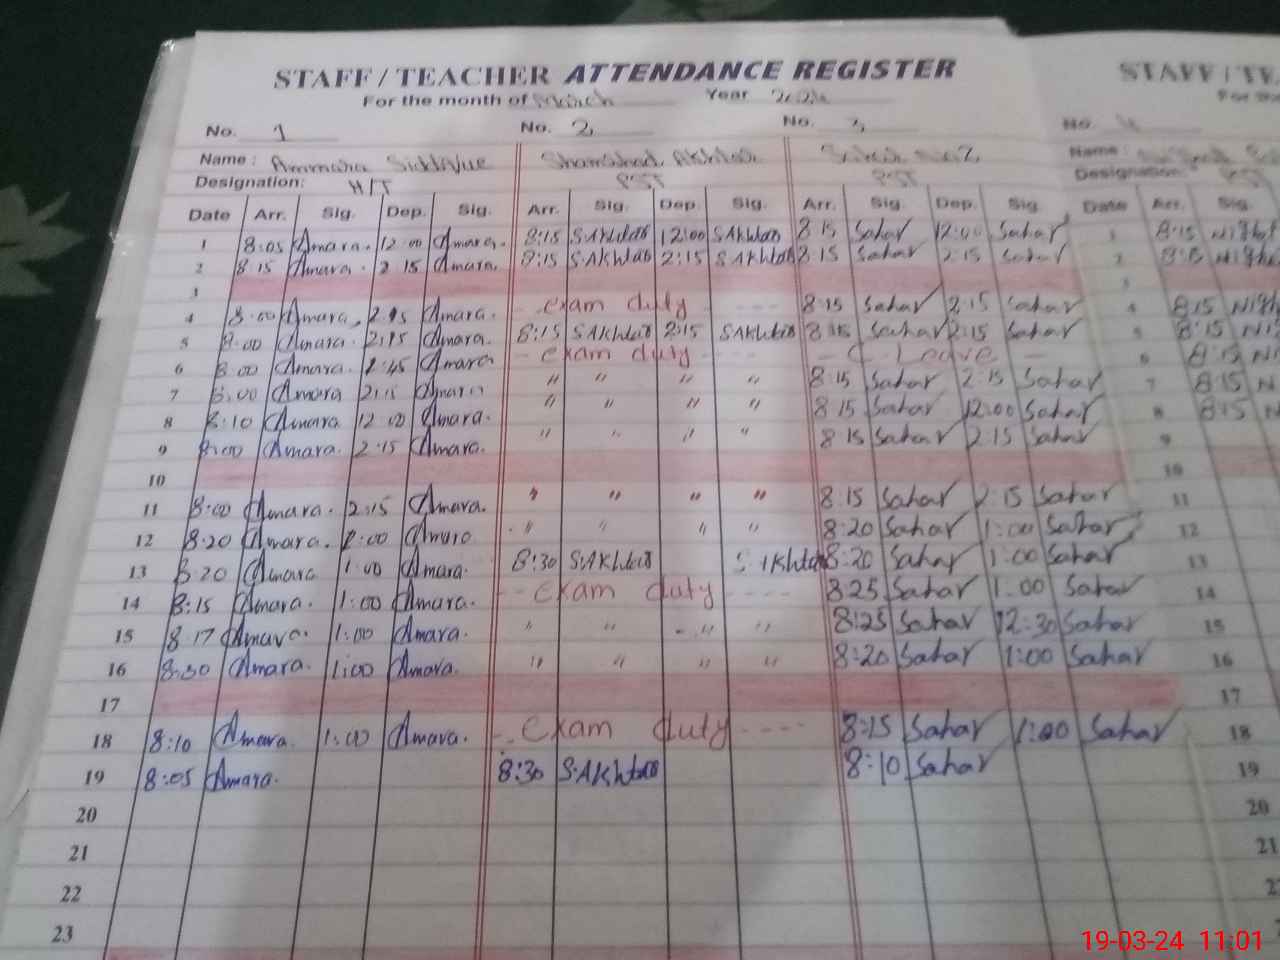 STAFF / TEACHER ATTENDANCE REGISTER
For the month of March Year 2024
No. 1 No. 2 No. 3 No. 4
Name : Ammara Siddique Shamshad Akhtar Sahar Naz Name:
Designation: HIT PST PST Designation: PST
Date Arr. Sig. Dep. Sig. Arr. Sig. Dep. Sig. Arr. Sig. Dep. Sig. Date Arr. Sig.
1 8:05 Amara. 12:00 Amara. 8:15 S.Akhtar 12:00 S.Akhtar 8:15 Sahar 12:00 Sahar 1 8:15
2 8:15 Amara. 2:15 Amara. 8:15 S.Akhtar 2:15 S.Akhtar 8:15 Sahar 2:15 Sahar 2 8:15
3 3
4 8:00 Amara. 2:15 Amara. exam duty 8:15 Sahar 2:15 Sahar 4 8:15
5 8:00 Amara. 2:15 Amara. 8:15 S.Akhtar 2:15 S.Akhtar 8:15 Sahar 2:15 Sahar 5 8:15
6 8:00 Amara. 2:45 Amara exam duty - C - Leave - 6 8:15
7 8:00 Amara 2:15 Amara " " " " 8:15 Sahar 2:15 Sahar 7 8:15
8 8:10 Amara 12:00 Amara. " " " " 8:15 Sahar 12:00 Sahar 8 8:15
9 8:00 Amara. 2:15 Amara. " " " " 8:15 Sahar 2:15 Sahar 9
10 10
11 8:00 Amara. 2:15 Amara. " " " " 8:15 Sahar 2:15 Sahar 11
12 8:20 Amara. Amara " " " " 8:20 Sahar 1:00 Sahar 12
13 8:20 Amara 1:00 Amara. 8:30 S.Akhtar S.Akhtar 8:20 Sahar 1:00 Sahar 13
14 8:15 Amara. 1:00 Amara. exam duty 8:25 Sahar 1:00 Sahar 14
15 8:17 Amara. 1:00 Amara. " " " " 8:25 Sahar 12:30 Sahar 15
16 8:30 Amara. 1:00 Amara. " " " " 8:20 Sahar 1:00 Sahar 16
17 17
18 8:10 Amara. 1:00 Amara. exam duty 8:15 Sahar 1:00 Sahar 18
19 8:05 Amara. 8:30 S.Akhtar 8:10 Sahar 19
20 20
21 21
22
23
19-03-24 11:01